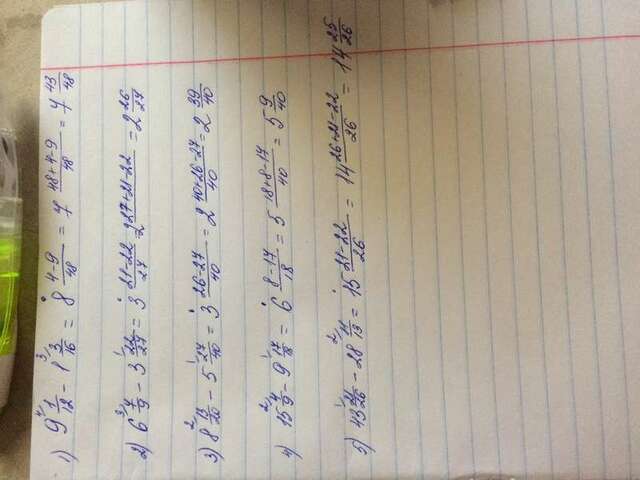 1) 9 4/ 1/12 - 1 3/ 3/16 = 8 (4-9)/48 = 7 (48+4-9)/48 = 7 43/48
2) 6 3/ 7/9 - 3 1/ 22/27 = 3 (21-22)/27 = 2 (27+21-22)/ = 2 26/27
3) 8 2/ 13/20 - 5 1/ 27/40 = 3 (26-27)/40 = 2 (40+26-27)/40 = 2 39/40
4) 15 2/ 4/9 - 9 1/ 17/18 = 6 (8-17)/18 = 5 (18+8-17)/40 = 5 9/40
5) 43 1/ 21/26 - 28 2/ 11/13 = 15 (21-22)/26 = 14 (26+21-22)/26 = 14 25/26